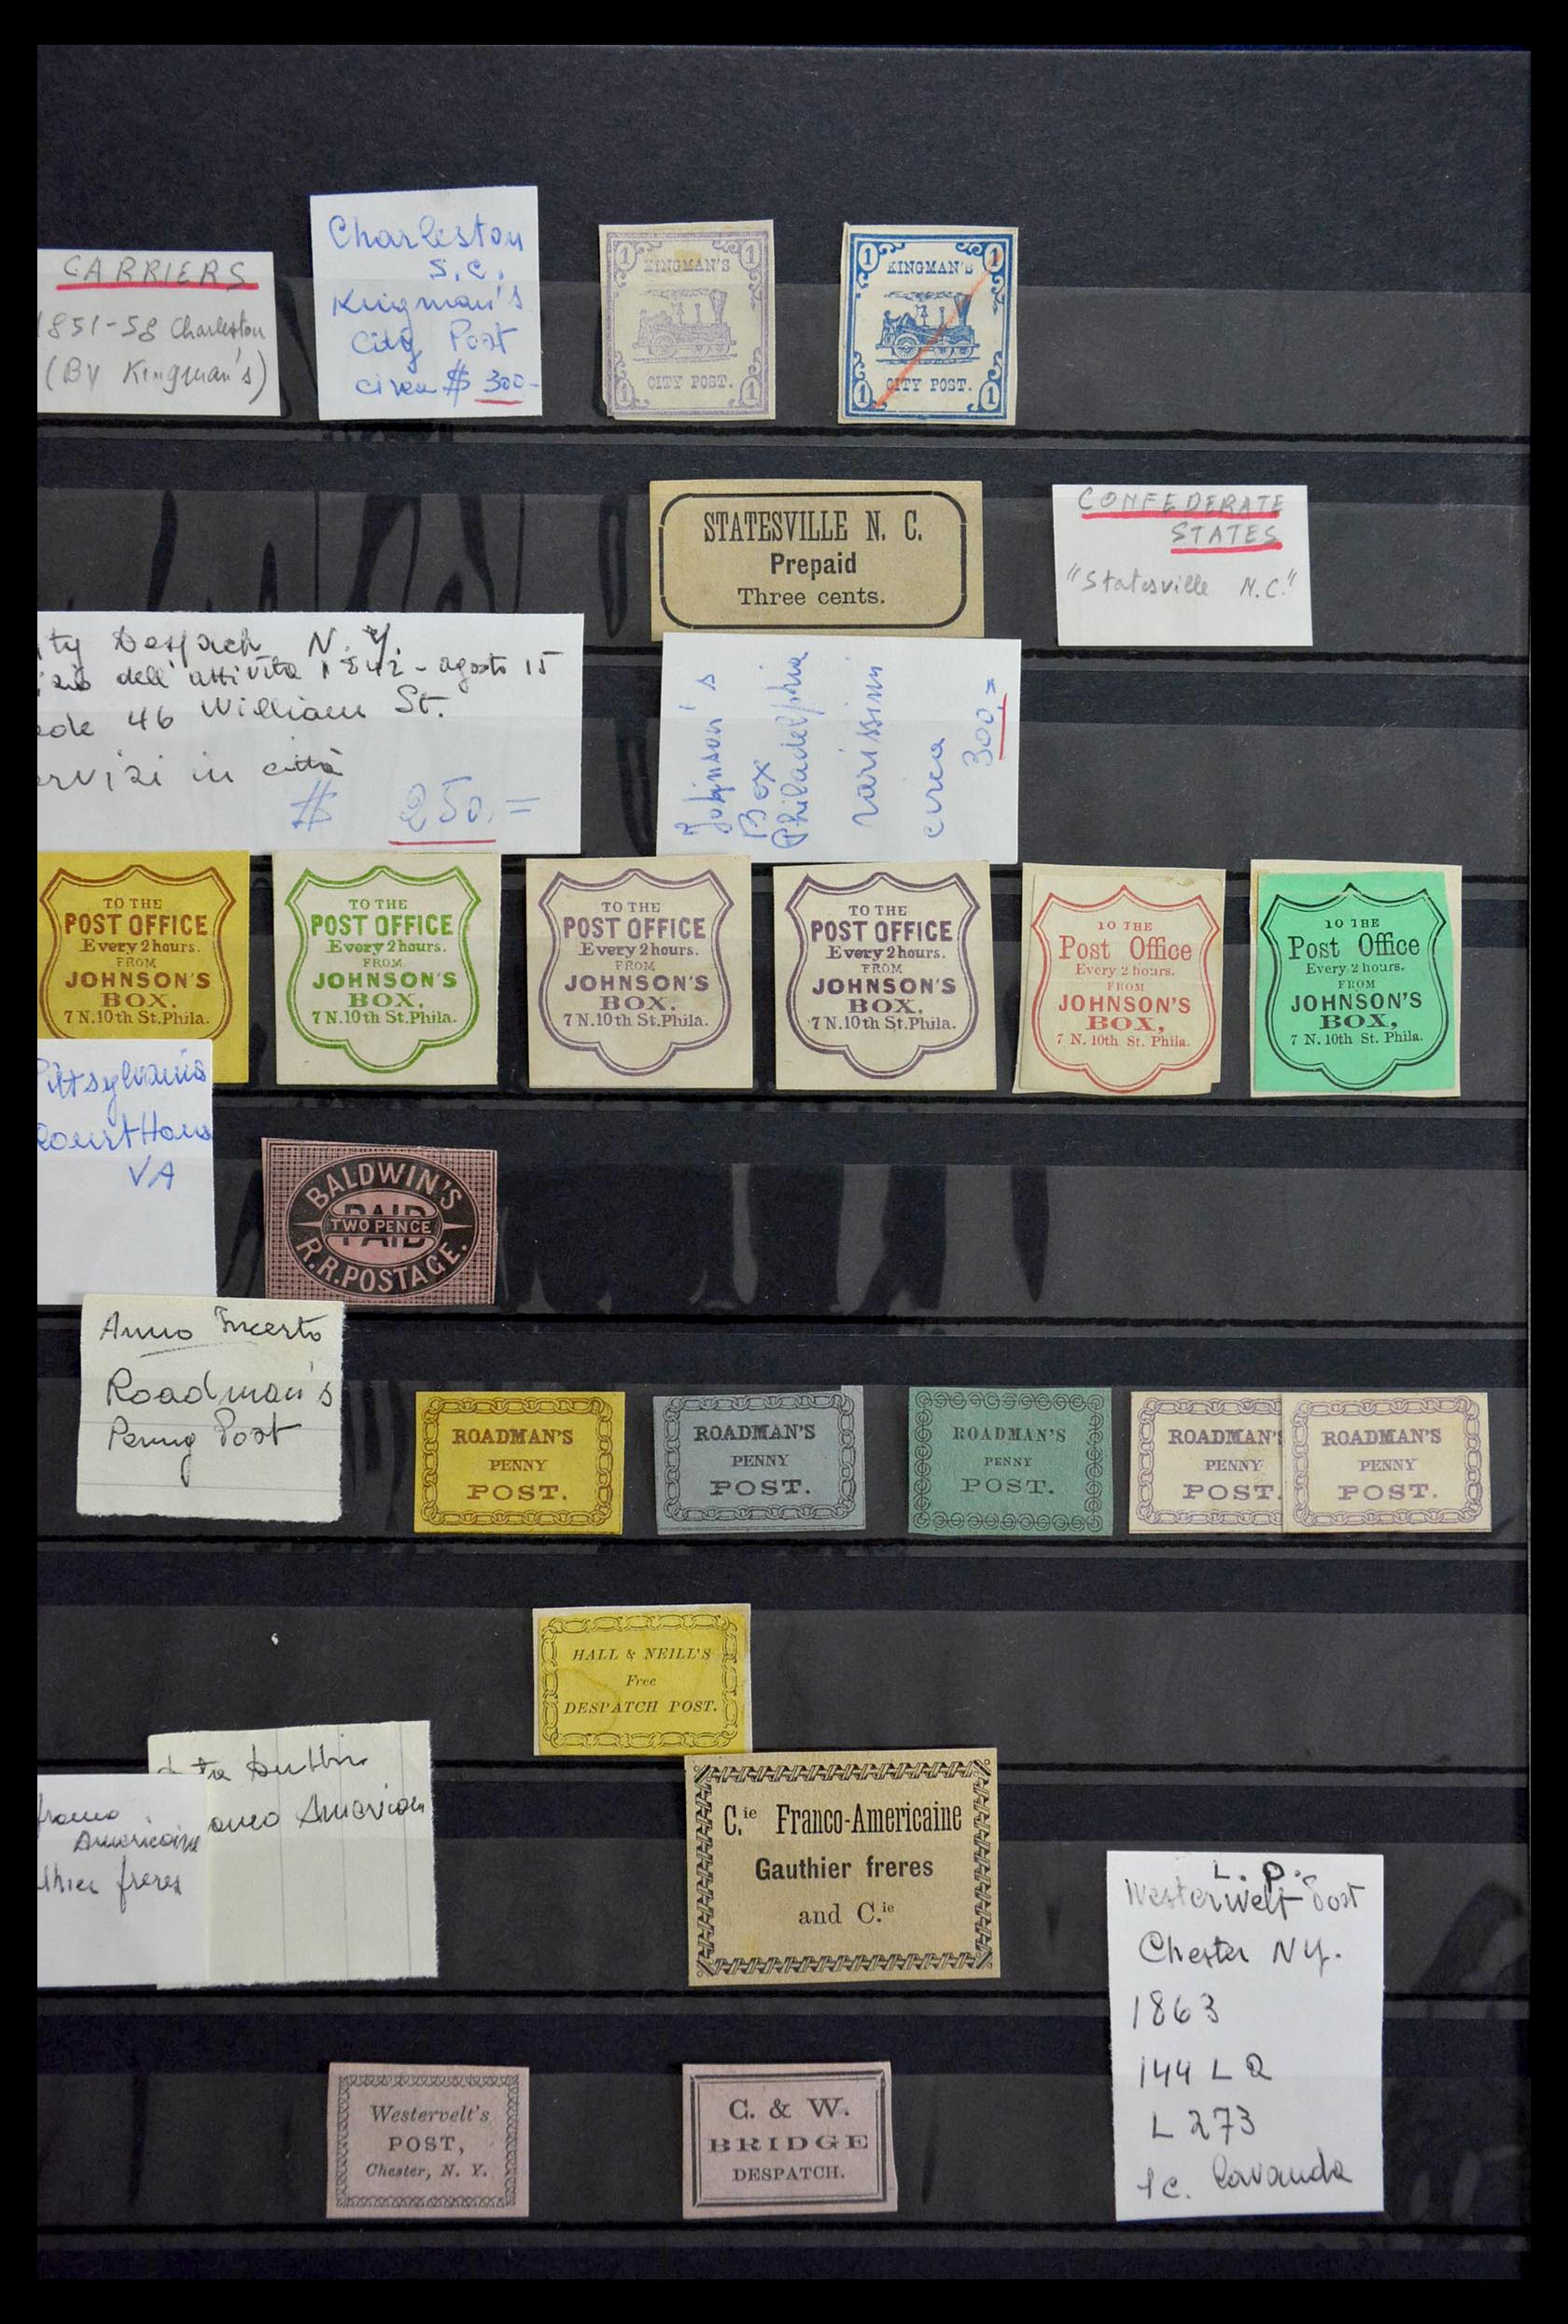 CARRIERS
1851-58 Charleston
(By Kingman's)
Charleston
S.C.
Kingman's
City Post
circa $ 300-
1 1
KINGMAN'S
CITY POST.
1 1
1 1
KINGMAN'S
CITY POST.
1 1
STATESVILLE N. C.
Prepaid
Three cents.
CONFEDERATE
STATES
"Statesville N.C."
ity Despach N.Y.
dell'attività 1842 - agosto 15
ede 46 William St.
ervizi in città
$ 250.=
Johnson's
Box
Philadelphia
rarissimi
circa
300.=
TO THE
POST OFFICE
Every 2 hours.
FROM
JOHNSON'S
BOX.
7 N. 10th St. Phila.
TO THE
POST OFFICE
Every 2 hours.
FROM
JOHNSON'S
BOX,
7 N. 10th St. Phila.
TO THE
POST OFFICE
Every 2 hours.
FROM
JOHNSON'S
BOX.
7 N. 10th St. Phila.
TO THE
POST OFFICE
Every 2 hours.
FROM
JOHNSON'S
BOX,
7 N. 10th St. Phila.
TO THE
Post Office
Every 2 hours.
FROM
JOHNSON'S
BOX,
7 N. 10th St. Phila.
TO THE
Post Office
Every 2 hours.
FROM
JOHNSON'S
BOX,
7 N. 10th St. Phila.
Pittsylvania
Court Hous
VA
BALDWIN'S
PAID
TWO PENCE
R.R. POSTAGE.
Anno Incerto
Roadman's
Penny Post
ROADMAN'S
PENNY
POST.
ROADMAN'S
PENNY
POST.
ROADMAN'S
PENNY
POST.
ROADMAN'S
PENNY
POST.
ROADMAN'S
PENNY
POST.
HALL & NEILL'S
Free
DESPATCH POST.
anco American
franco
Americaine
thier freres
C.ie Franco-Americaine
Gauthier freres
and C.ie
L.P.
Westerwelt Post
Chester NY.
1863
144 L 2
L 273
1c. Lavanda
Westervelt's
POST,
Chester, N. Y.
C. & W.
BRIDGE
DESPATCH.